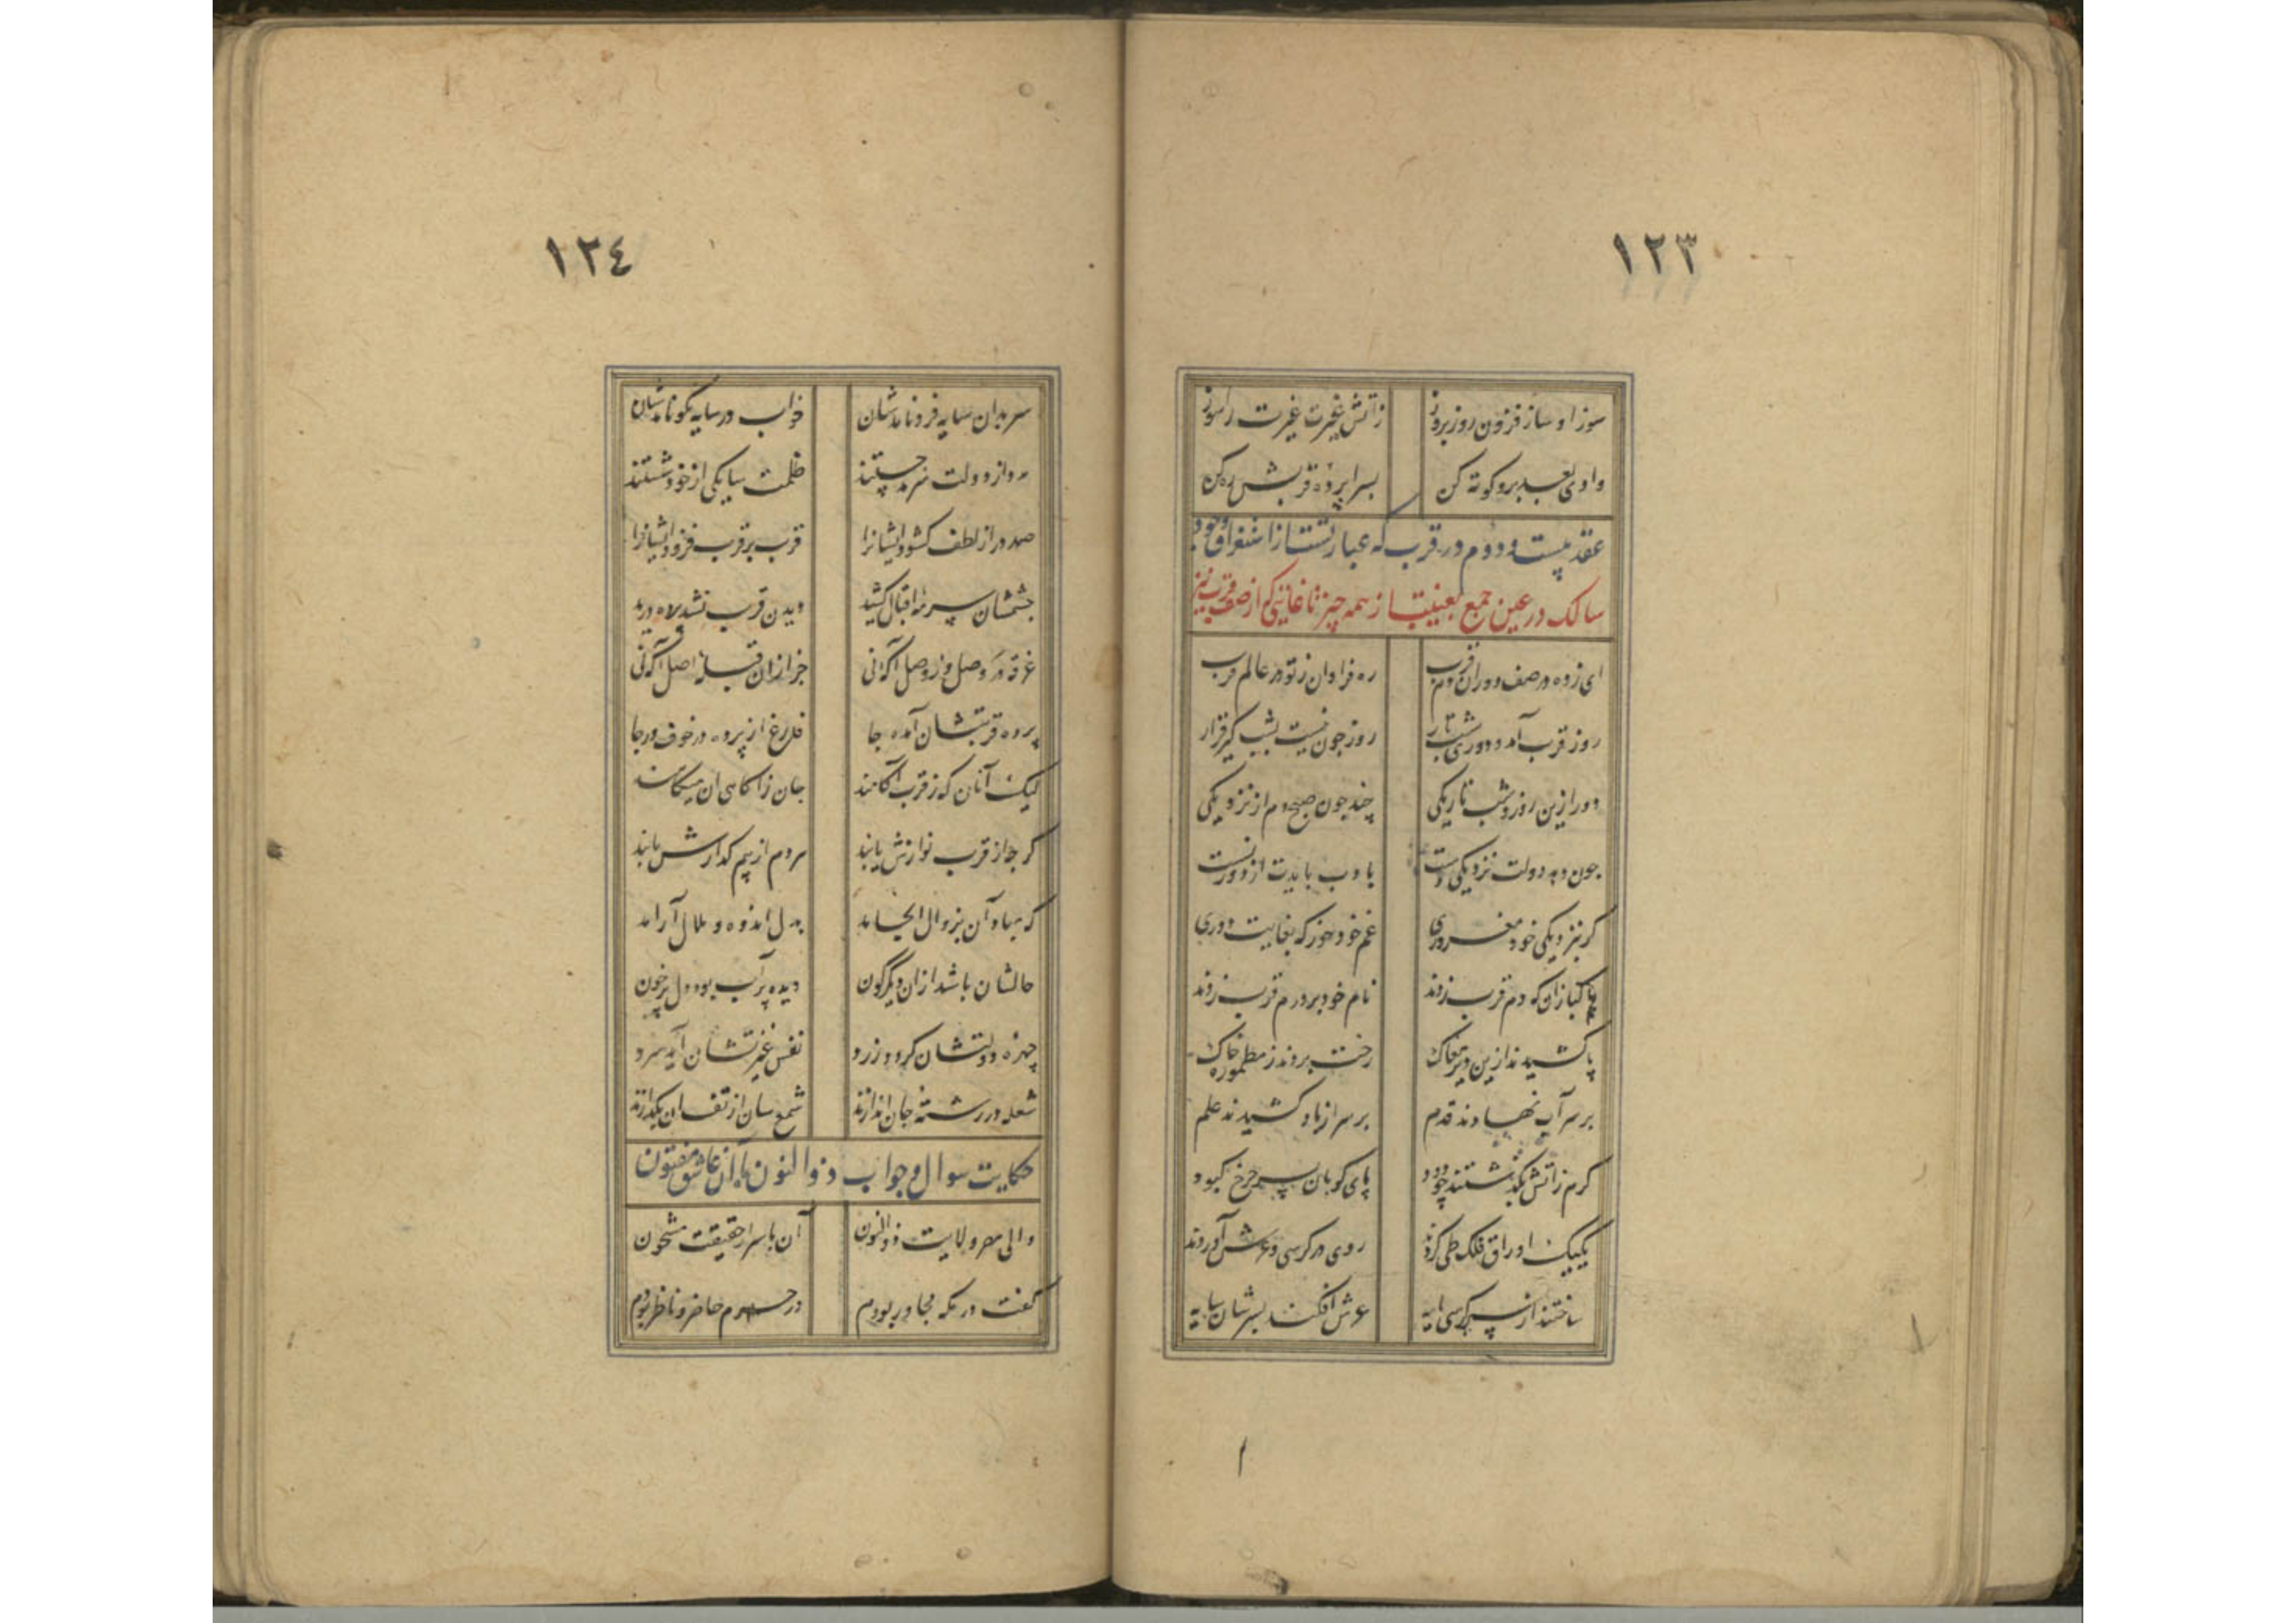 ١٢٣
سوز او ساز فزون روز بروز
زآتش غیرت غیرت را سوز
وادی بعد برو کوته کن
بسراپرده قربش ره کن
عقد بیست و دوم در قرب که عبارتست از استغراق وجود
سالک در عین جمع بغیبت از همه چیز تا غایتی که از صفت قرب نیز
ای زده در صف دوران دم قرب
ره فراوان ز تو در عالم قرب
روز قرب آمد و دوری شب تار
روز چون نیست بشب گیر قرار
دور ازین روز و شب تاریکی
چند چون صبح دم از نزدیکی
چون دهد دولت نزدیکی دست
با ادب بایدت از دور نشست
گر بنزدیکی خود مغروری
غم خود خور که بغایت دوری
پاکبازان که دم قرب زدند
نام خود بر درم قرب زدند
پا کشیدند ازین دیر مغاک
رخت بردند ز مطموره خاک
بر سر آب نهادند قدم
بر سر از باد کشیدند علم
گرم زآتش بگذشتند چو دود
پای کوبان بسر چرخ کبود
یکیک اوراق فلک طی کردند
روی در کرسی و عرش آوردند
ساختند از سر کرسی پایه
عرش افکند بسرشان سایه
١٢٤
سر بدان سایه فرو نامدشان
خواب در سایه نکو نامدشان
ظلمت سایگی از خود شستند
صد در از لطف گشود ایشانرا
قرب بر قرب فزود ایشانرا
چشمشان سرمه اقبال کشید
دیدن قرب نشد لاه دید
غرقه در وصل و ز وصل آگه نی
جز ازان قبله اصل آگه نی
پرده قربتشان آمده جا
فارغ از پرده در خوف و رجا
لیک آنان که ز قرب آگاهند
جان ز آگاهی آن میکاهند
گرچه از قرب نوازش یابند
هر دم از بیم گدازش یابند
که مباد آن بزوال انجامد
بدل اندوه و ملال آرامد
حالشان باشد ازان دیگرگون
دیده پرآب بود دل پرخون
چهره دولتشان گردد زرد
نفس غیرتشان آید سرد
شعله در رشته جان اندازند
شمع سان از تف آن بگدازند
حکایت سوال و جواب ذوالنون با آن عاشق مفتون
والی مصر ولایت ذوالنون
آن باسرار حقیقت مشحون
گفت در مکه مجاور بودم
در حرم حاضر و ناظر بودم